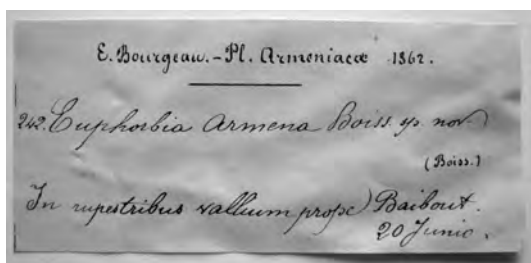 E. Bourgeau. - Pl. Armeniacæ 1862.
242. Euphorbia Armena Boiss sp. nov.
(Boiss.)
In rupestribus vallium prope Baibout.
20 Junio.